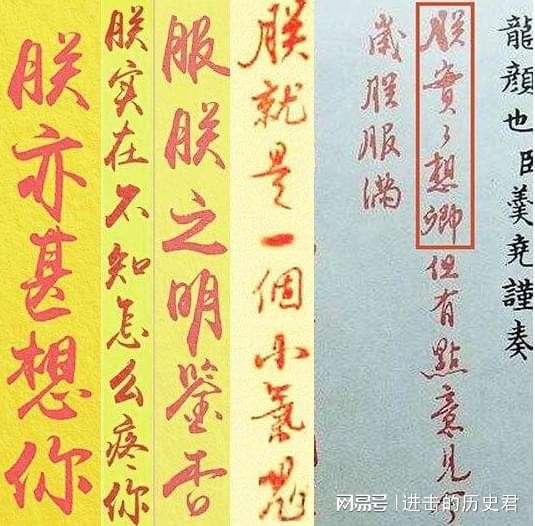 朕亦甚想你
朕实在不知怎么疼你
服朕之明鉴否
朕就是一個小氣鬼
龍顏也臣羹堯謹奏
朕實〻想卿但有點意見
朕服滿
网易号 | 进击的历史君